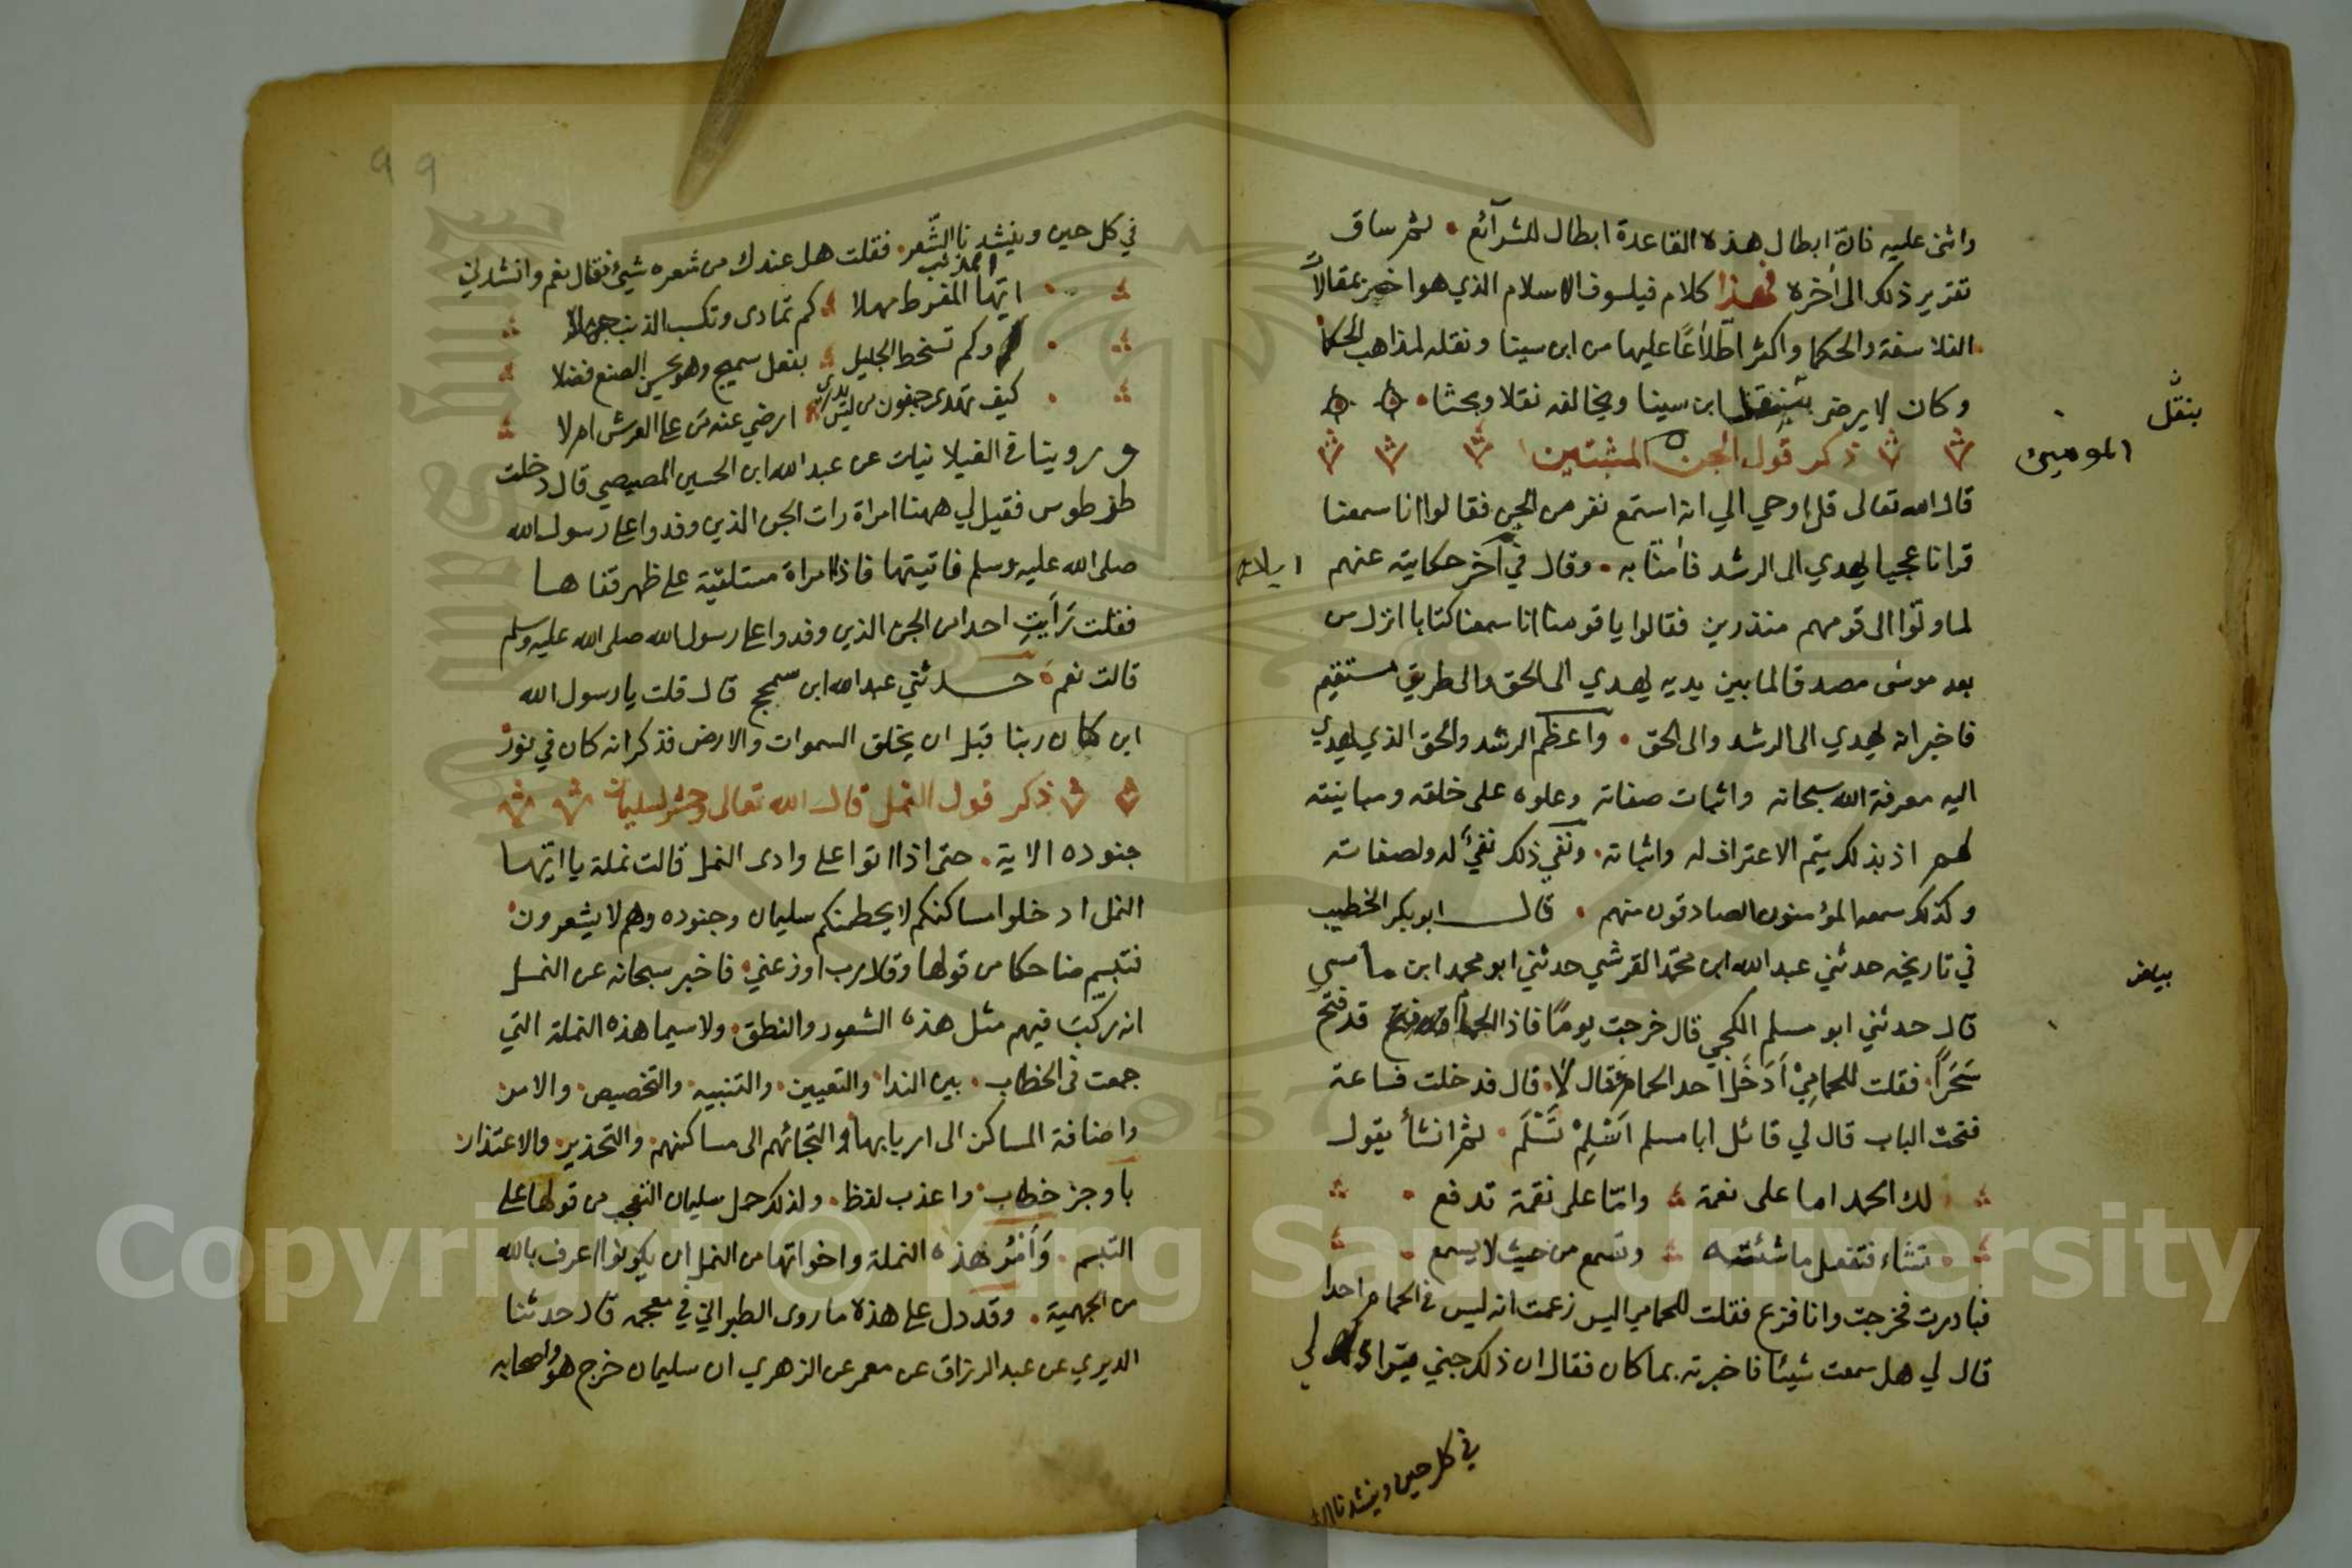 واثنى عليه فان ابطال هذه القاعدة ابطال للشرآئع . ثم ساق
تقرير ذلك الى أخره فهذا كلام فيلسوف الاسلام الذي هو اخبر بمقالات
الفلاسفة والحكما واكثر اطّلاعًا عليها من ابن سينا ونقله لمذاهب الحكما
وكان لا يرضى ابن سينا ويخالفه نقلا وبحثا .
بنقل
ذكر قول الجن المثبتين
المومنين
قال الله تعالى قل اوحي الي انه استمع نفر من الجن فقالوا انا سمعنا
قرانا عجبا يهدي الى الرشد فأمنّا به . وقال في آخر حكايته عنهم
لما ولّوا الى قومهم منذرين فقالوا يا قومنا انا سمعنا كتابا انزل من
بعد موسى مصدقا لما بين يديه يهدي الى الحق والى طريق مستقيم
فاخبر انه يهدي الى الرشد والى الحق . واعظم الرشد والحق الذي يهدي
اليه معرفة الله سبحانه واثبات صفاته وعلوه على خلقه ومباينته
لهم اذ بذلك يتم الاعتراف له واثباته . ونفي ذلك نفيٌ له ولصفاته
وكذلك سمعه المؤمنون الصادقون منهم . قال ابو بكر الخطيب
في تاريخه حدثني عبد الله ابن محمّد القرشي حدثني ابو محمد ابن ماسي
بياض
قال حدثني ابو مسلم الكجي قال خرجت يومًا فاذا الحمام قد فتح
سَحَرًا . فقلت للحاميْ أدَخَل احد الحمام فقال لا . قال فدخلت فساعة
فتحت الباب قال لي قائل ابا مسلم اَسْلِمْ تَسْلَم . ثم انشأ يقول
لك الحمد اما على نعمة وامّا على نقمة تدفع .
تشاء فتفعل ما شئته وتسمع من حيث لا يسمع .
فبادرت فخرجت وانا فزع فقلت للحمامي اليس زعمت انه ليس في الحمام احدا
قال لي هل سمعت شيئا فاخبرته بما كان فقال ان ذلك جني يتراى لي
في كل حين وينشدنا
99
في كل حين وينشدنا الشّعر . فقلت هل عندك من شعره شيئ فقال نعم وانشدني
ايّها المذنب المفرط مهلا كم تمادى وتكسب الذنب جهلا
وكم تسخط الجليل بفعل سميج وهو يحسن الصنع فضلا
كيف تهدى جفون من ليس يدري ارضي عنه من على العرش ام لا
وروينا في الغيلانيات عن عبد الله ابن الحسين المصيصي قال دخلت
طرطوس فقيل لي ههنا امراة رات الجن الذين وفدوا على رسول الله
صلى الله عليه وسلم فاتيتها فاذا امراة مستلقية على ظهر قفاها
فقلت رَأيتِ احدا من الجن الذين وفدوا على رسول الله صلى الله عليه وسلم
قالت نعم حدثني عبد الله ابن سمحج قال قلت يا رسول الله
اين كان ربنا قبل ان يخلق السموات والارض فذكر انه كان في نور
ذكر قول النمل قال الله تعالى وحشر لسليمان
جنوده الاية . حتى اذا اتوا على وادى النمل قالت نملة يا ايّها
النمل ادخلوا مساكنكم لا يحطمنكم سليمان وجنوده وهم لا يشعرون
فتبسم ضاحكا من قولها وقال رب اوزعني . فاخبر سبحانه عن النمل
انه ركّب فيهم مثل هذه الشعور والنطق . ولا سيما هذه النملة التي
جمعت في الخطاب . بين الندا والتعيين . والتنبيه . والتخصيص . والامر
واضافة المساكن الى اربابها والتجائهم الى مساكنهم . والتحذير . والاعتذار
باوجز خطاب . واعذب لفظ . ولذلك حمل سليمان التعجب من قولها على
التبسم . هذه النملة واخواتها من النمل ان يكونوا اعرف بالله
من الجهمية . وقد دل على هذه ما روى الطبراني في معجمه قال حدثنا
الديري عن عبد الرزاق عن معمر عن الزهري ان سليمان خرج هو واصحابه
Copyright © King Saud University
1957